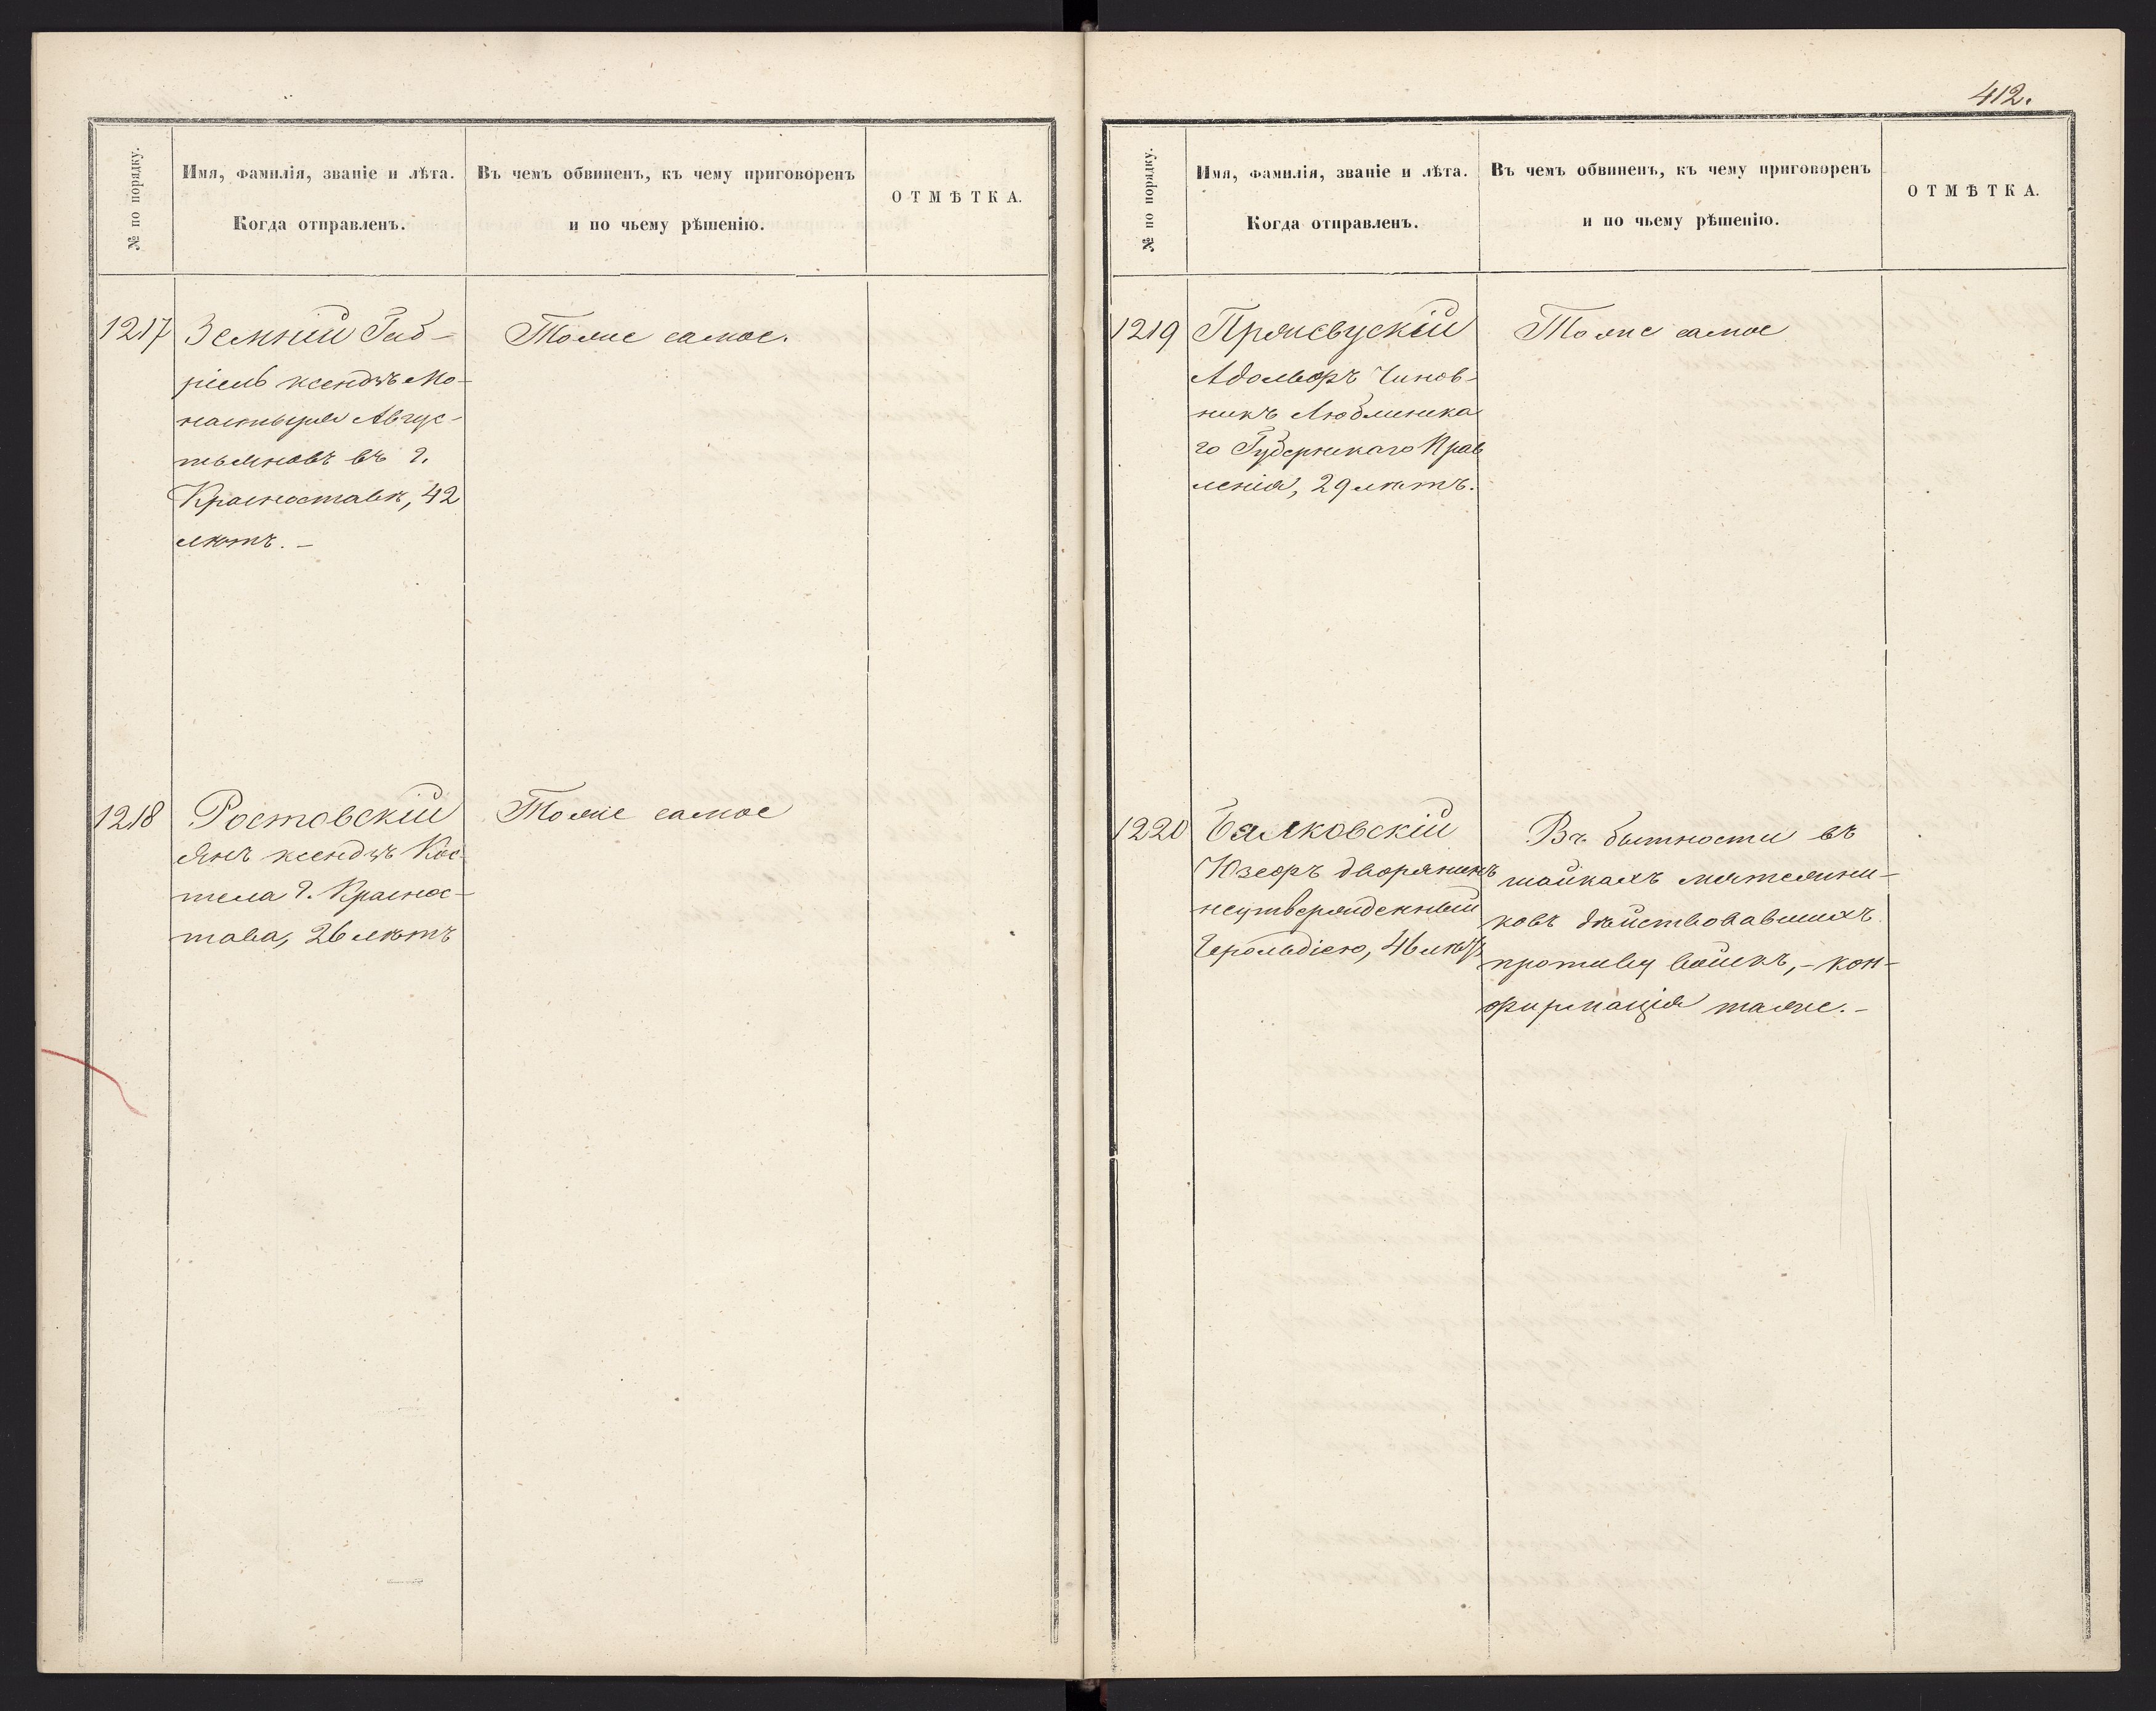 № по порядку.
Имя, фамилія, званіе и лѣта.
Когда отправленъ.
Въ чемъ обвиненъ, къ чему приговоренъ
и по чьему рѣшенію.
ОТМѢТКА.
1217
Земній Габ-
ріель ксендзъ Мо-
настыря Авгус-
тьяновъ въ г.
Красноставѣ, 42
лѣтъ. —
Тоже самое.
1218
Ростовскій
Янъ ксендзъ Кос-
тела г. Краснос-
тава, 26 лѣтъ
Тоже самое
412.
№ по порядку.
Имя, фамилія, званіе и лѣта.
Когда отправленъ.
Въ чемъ обвиненъ, къ чему приговоренъ
и по чьему рѣшенію.
ОТМѢТКА.
1219
Пржевускій
Адольфъ Чинов-
никъ Люблинска
го Губернскаго Прав
ленія, 29 лѣтъ.
Тоже самое
1220
Бялковскій
Юзефъ дворянинъ
неутвержденный
Герольдіею, 46 лѣтъ
Въ бытности въ
шайкахъ мятежни-
ковъ дѣйствовавшихъ
противу войскъ, — кон-
фирмація таже. —